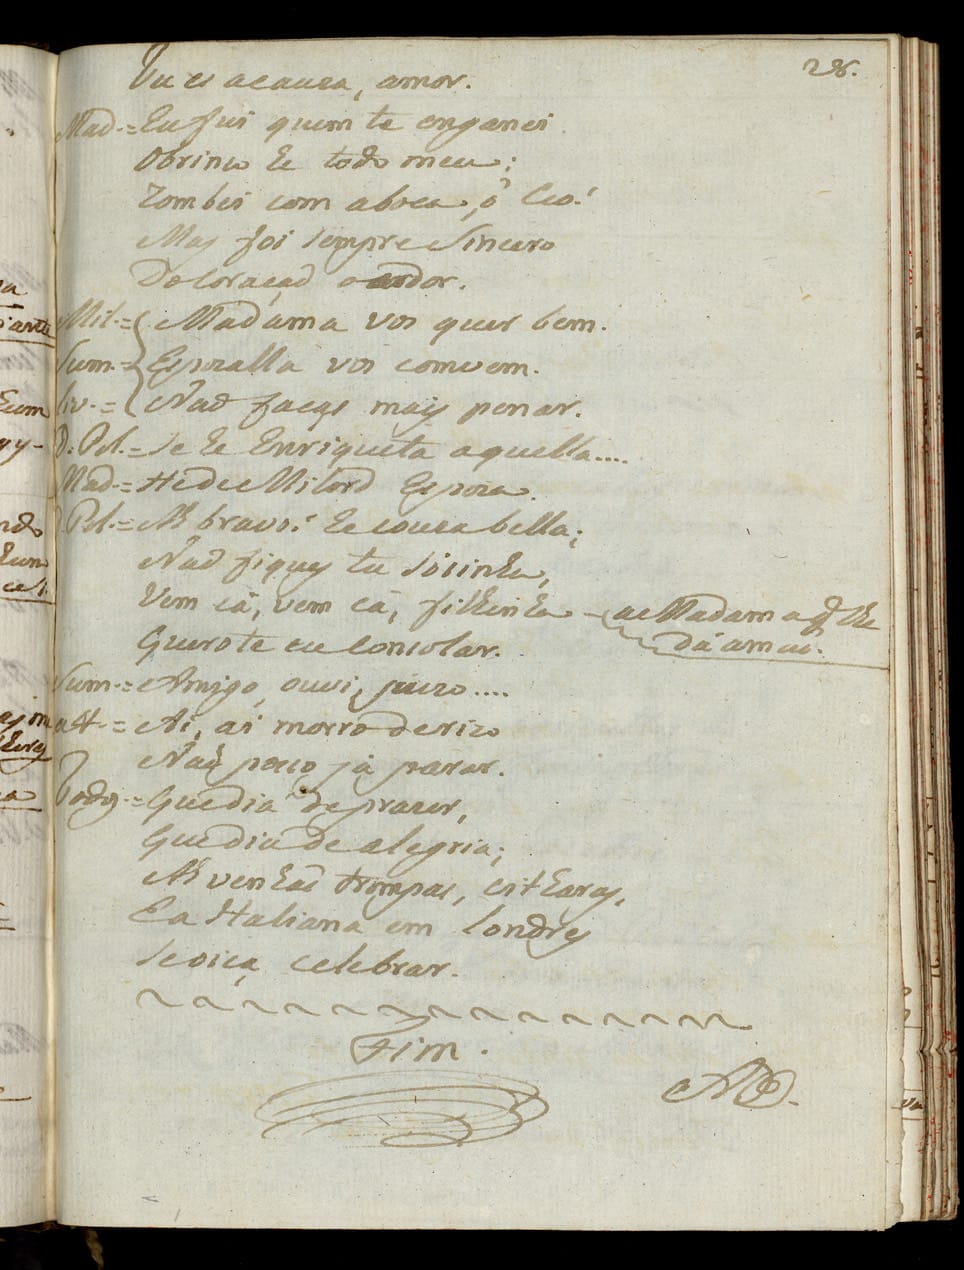 28.
Tu es a cauza, amor.
Mad.= Eu fui quem te enganei
O brinco he todo meu;
Zombei com a boca, ó Ceo!
Mas foi sempre sincero
Do Coraçaõ o ardor.
Mil.= Madama vos quer bem.
Sum.= Espozalla vos convem.
Liv.= Naõ façaes mais penar.
D. Pol.= Se he Enriqueta aquella....
Mad.= He de Milord Espoza.
D. Pol.= Ah bravo! he couza bella;
Naõ fiques tu sosinha,
Vem cá, vem cá, filhinha — a Madama q̃ lhe
dá a maõ.
Quero te eu consolar.
Sum.= Amigo, ouvi, juizo....
Ast.= Ai, ai morro de rizo
Naõ posso já parar.
Todos.= Que dia de prazer,
Que dia de alegria;
Ah venhaõ trompas, citharas,
E a Italiana em Londres
Se oiça celebrar.
Fim.